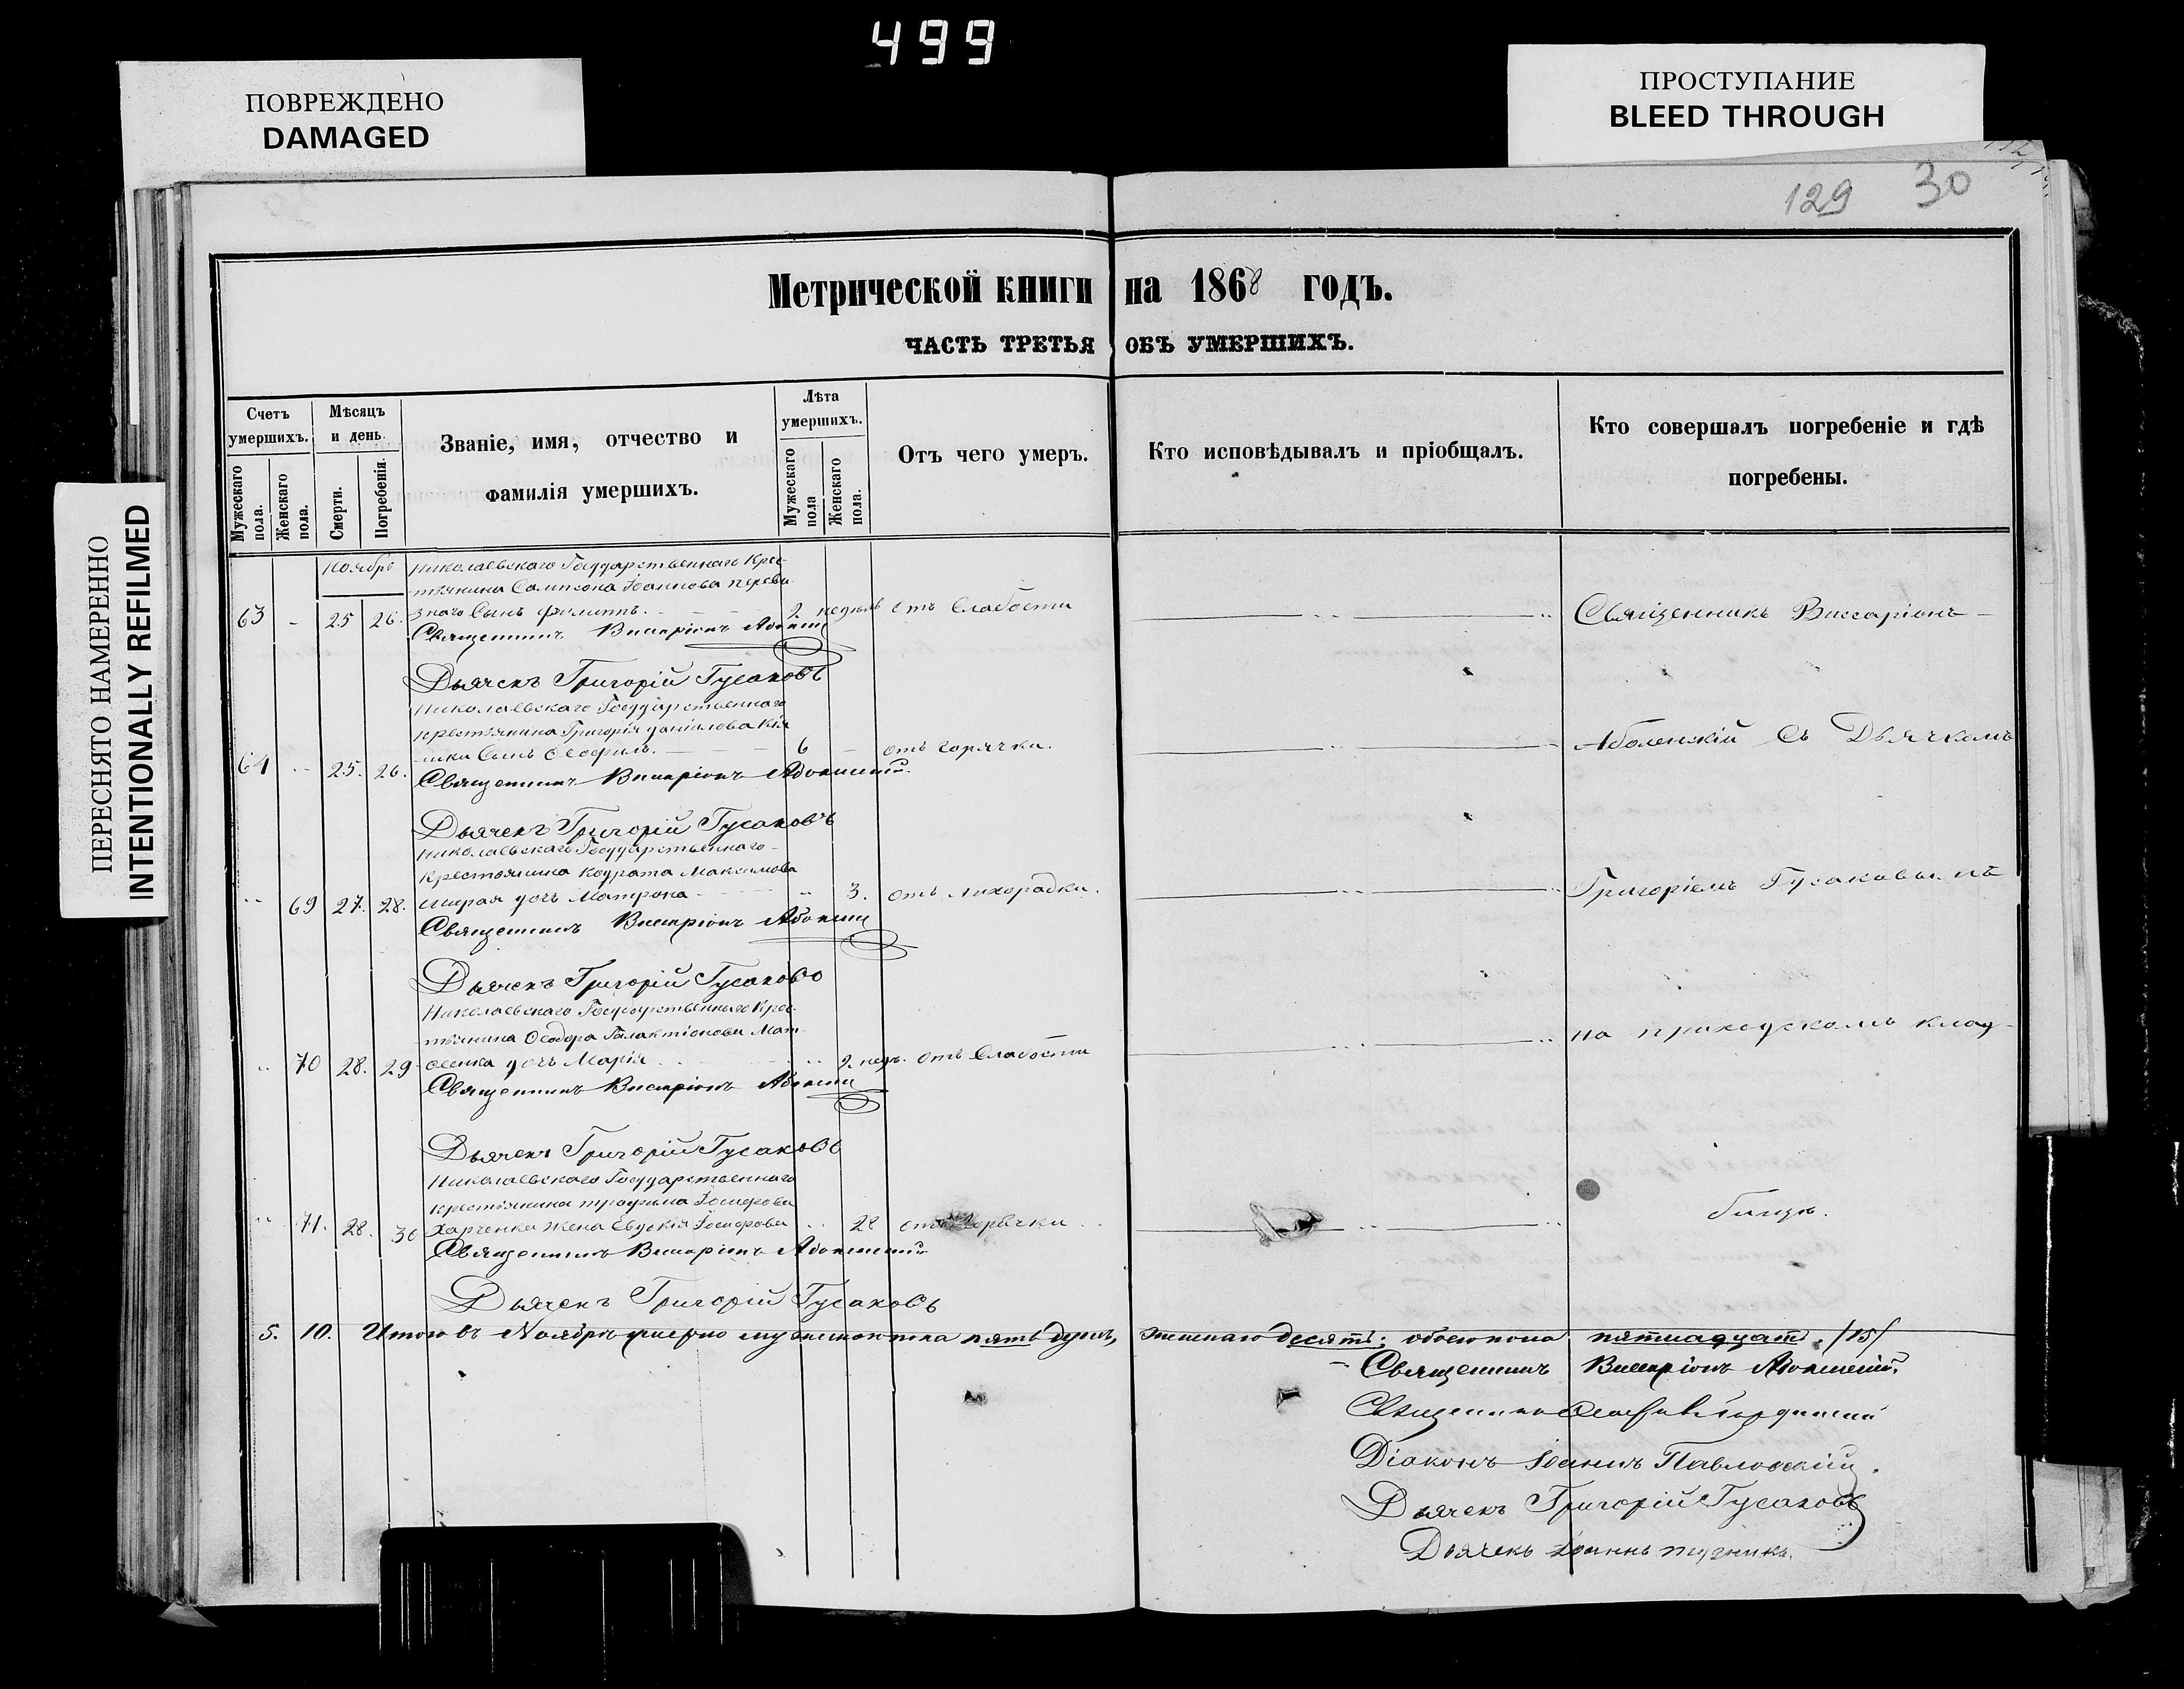 499
ПОВРЕЖДЕНО
DAMAGED
ПРОСТУПАНИЕ
BLEED THROUGH
ПЕРЕСНЯТО НАМЕРЕННО
INTENTIONALLY REFILMED
129 30
Метрической книги на 1868 годъ.
ЧАСТЬ ТРЕТЬЯ ОБЪ УМЕРШИХЪ.
Счетъ умершихъ.
Мужескаго пола.
Женскаго пола.
Мѣсяцъ и день
Смерти.
Погребенія.
Званіе, имя, отчество и
фамилія умершихъ.
Лѣта умершихъ.
Мужескаго пола
Женскаго пола.
Отъ чего умеръ.
Кто исповѣдывалъ и пріобщалъ.
Кто совершалъ погребеніе и гдѣ
погребены.
ноябрь Николаевскаго Государственнаго Крес-
тьянина Сампсона Іоаннова
63 - 25 26. сынъ Филиппъ. 2 недѣль отъ Слабости Священникъ Виссаріонъ
Священникъ Виссаріонъ
Дьячекъ Григорій Гусаковъ
Николаевскаго Государственнаго
крестьянина Григорія Данілова
64 25. 26. сынъ Ѳеофилъ. 6 - отъ горячки. Аболенскій съ Дьячкомъ
Священникъ Виссаріонъ
Дьячекъ Григорій Гусаковъ
Николаевскаго Государственнаго
Крестьянина Кодрата Максимова
69 27. 28. дочь Матрона - 3. отъ лихорадки. Григоріемъ Гусаковымъ
Священникъ Виссаріонъ
Дьячекъ Григорій Гусаковъ
Николаевскаго Государственнаго Крес-
тьянина Ѳеодора Галактіонова Мат-
70 28. 29 дочь Марія 2 нед. отъ Слабости на приходскомъ клад-
Священникъ Виссаріонъ
Дьячекъ Григорій Гусаковъ
Николаевскаго Государственнаго
крестьянина Трофима Іосифова
71. 28. 30 Харченка жена Евдокія Іосифова 28 отъ горячки бищѣ.
Священникъ Виссаріонъ
Дьячекъ Григорій Гусаковъ
5. 10. Итого въ Ноябрѣ умерло мужеска пола пять душъ, женскаго десять; обоего пола пятнадцать. /15/
Священникъ Виссаріонъ
Священникъ
Діаконъ Іоаннъ Павловскій.
Дьячекъ Григорій Гусаковъ
Дьячекъ Іоаннъ